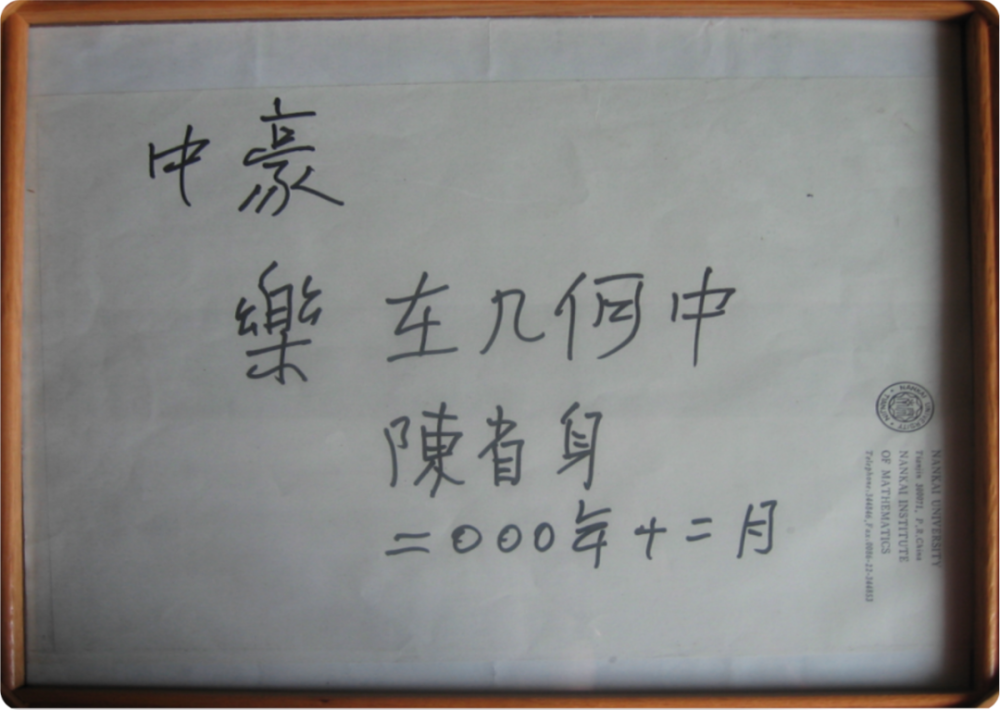 中豪
樂在几何中
陳省身
二〇〇〇年十二月
NANKAI UNIVERSITY
Tianjin 300071, P.R.China
NANKAI INSTITUTE
OF MATHEMATICS